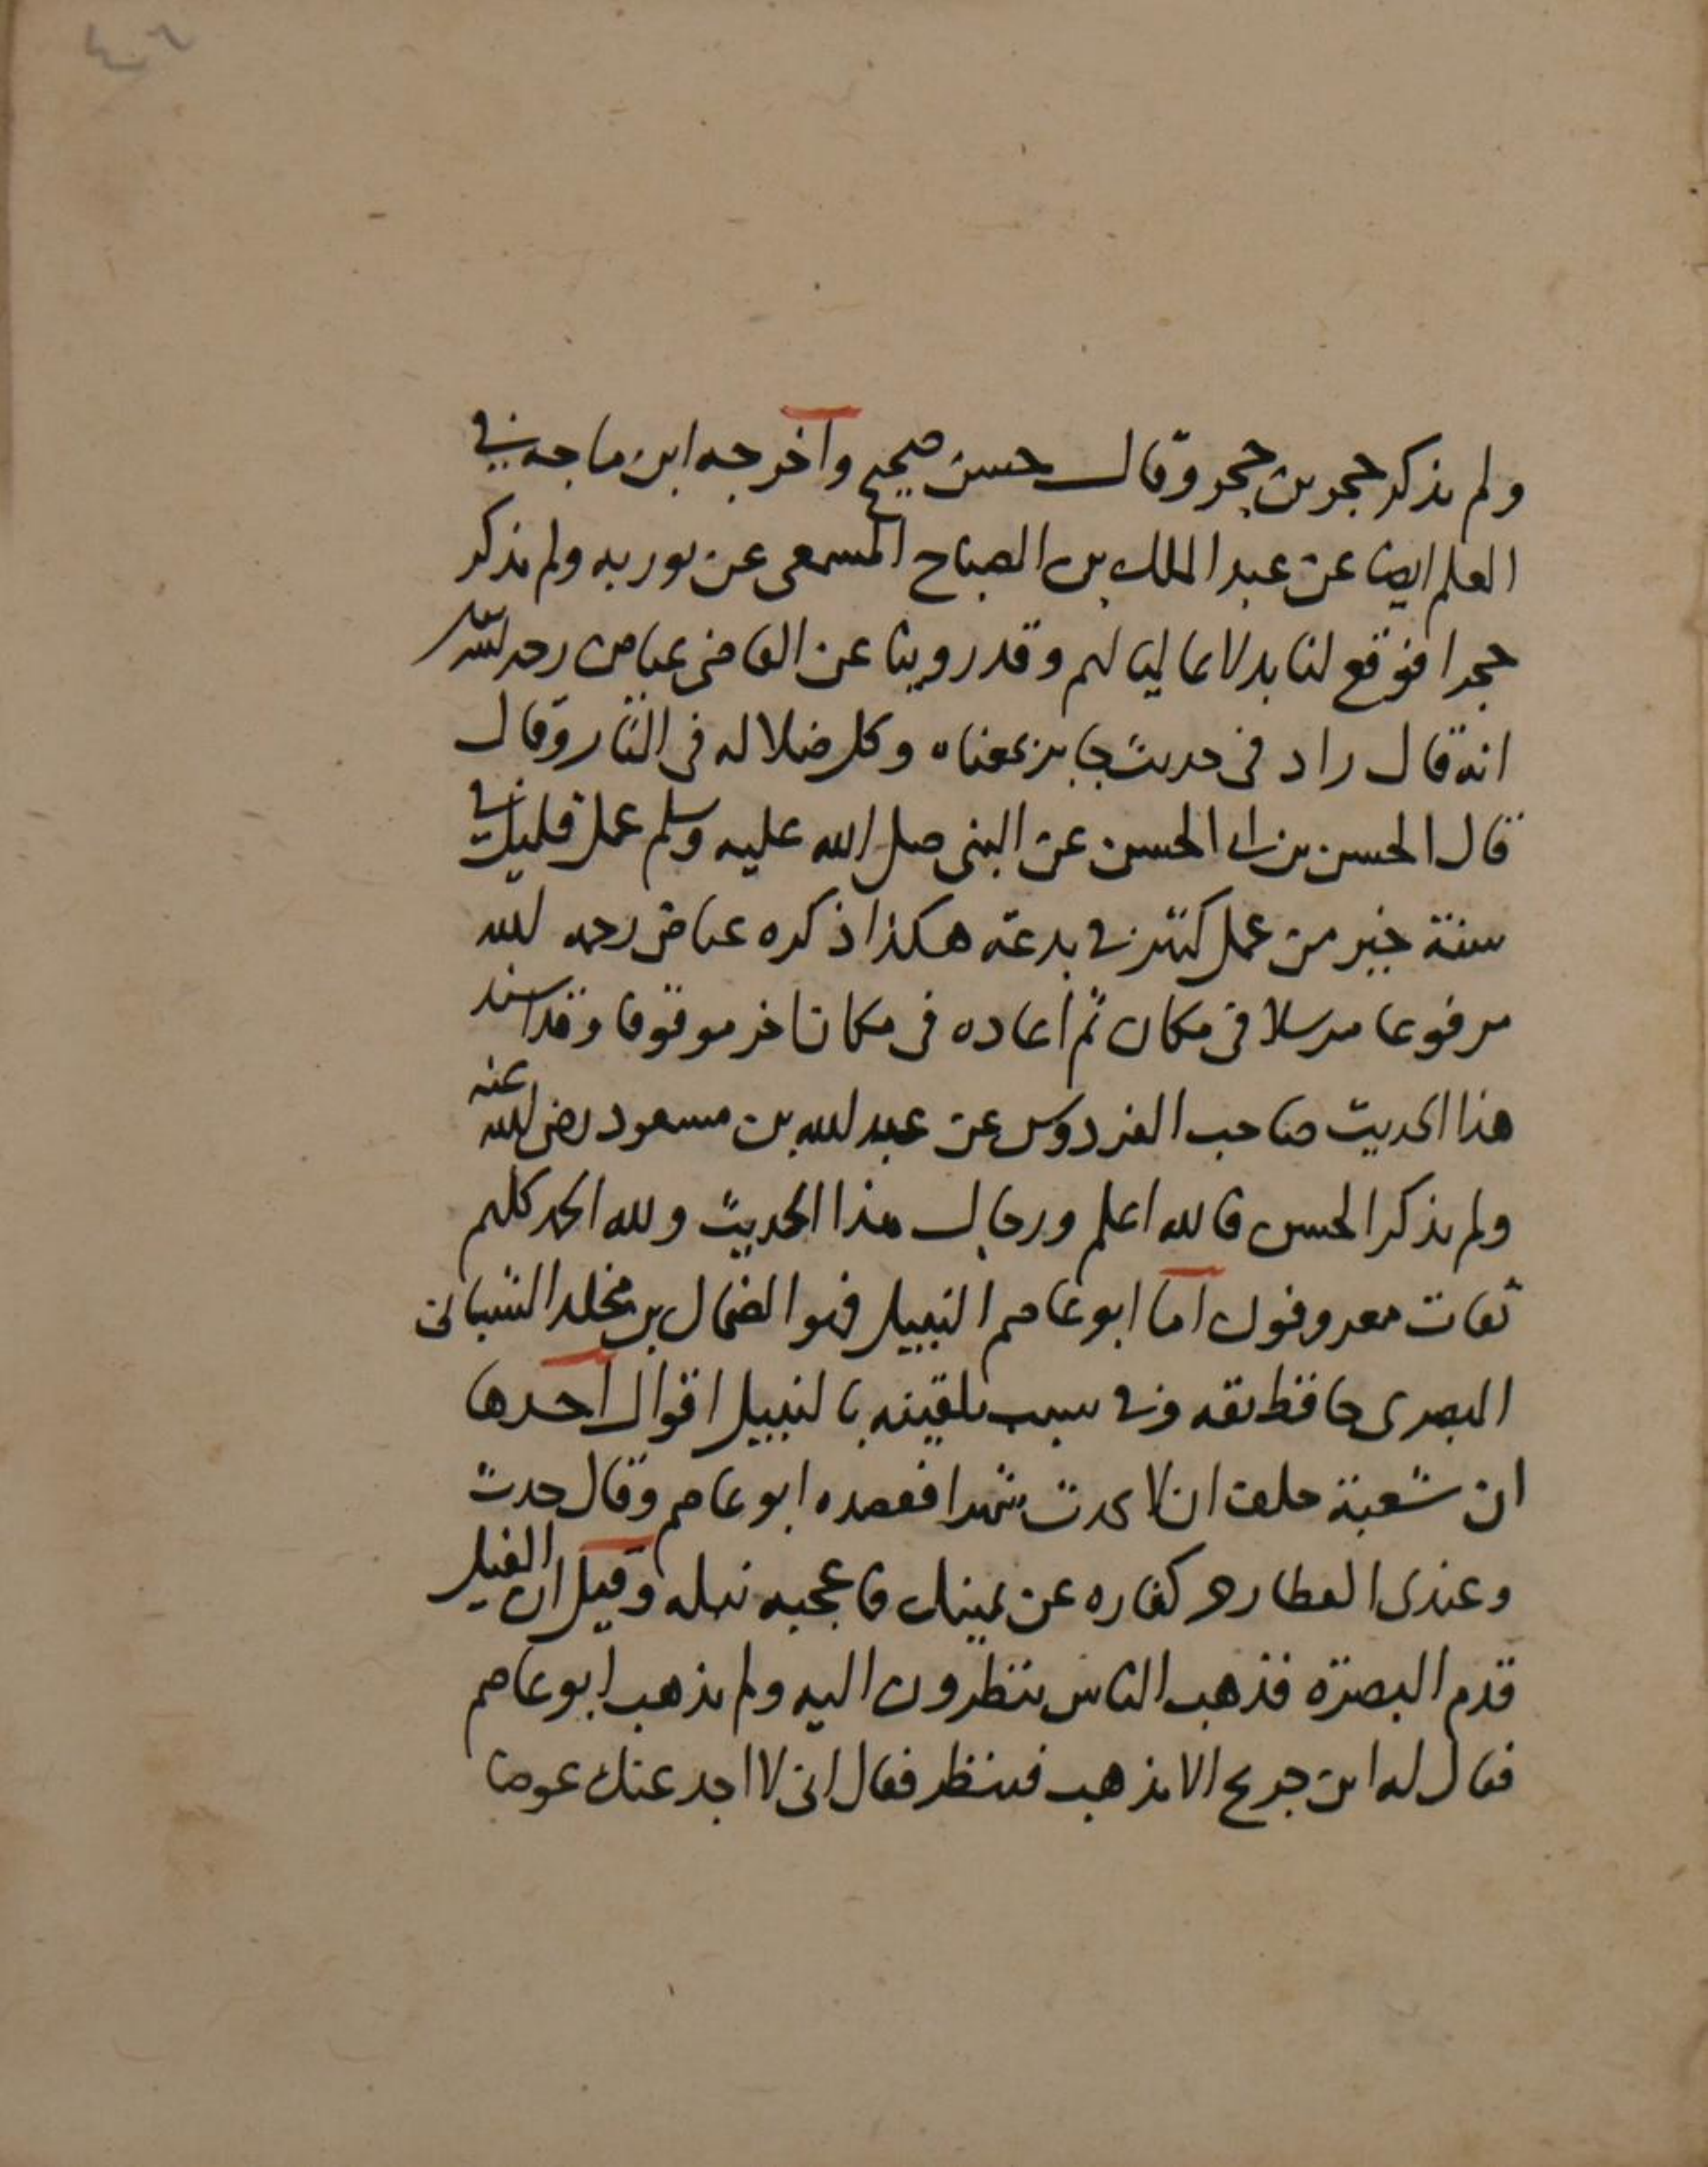 ٤٠٦
ولم يذكر حجر بن حجر وقال حسن صحيح واخرجه ابن ماجه في
العلم ايضا عن عبد الملك بن الصباح المسمعى عن ثور به ولم يذكر
حجرا فوقع لنا بدلا عاليا لهم وقد روينا عن القاضى عياض رحمه الله
انه قال زاد فى حديث جابر بمعناه وكل ضلالة فى النار وقال
قال الحسن بن ابى الحسن عن النبى صلى الله عليه وسلم عمل قليل في
سنة خير من عمل كثير في بدعة هكذا ذكره عياض رحمه الله
مرفوعا مرسلا فى مكان ثم اعاده فى مكان اخر موقوفا وقد اسند
هذا الحديث صاحب الفردوس عن عبد الله بن مسعود رضى الله عنه
ولم يذكر الحسن فالله اعلم ورجال هذا الحديث ولله الحمد كلهم
ثقات معروفون اما ابو عاصم النبيل فهو الضحاك بن مخلد الشيبانى
البصرى حافظ ثقه وفي سبب تلقيبه بالنبيل اقوال احدها
ان شعبة حلف ان لا يحدث شهرا فقصده ابو عاصم وقال حدث
وعندى العطار حر كفاره عن يمينك فاعجبه نبله وقيل ان الفيل
قدم البصرة فذهب الناس ينظرون اليه ولم يذهب ابو عاصم
فقال له ابن جريج الا تذهب فتنظر فقال انى لا اجد عنك عوضا